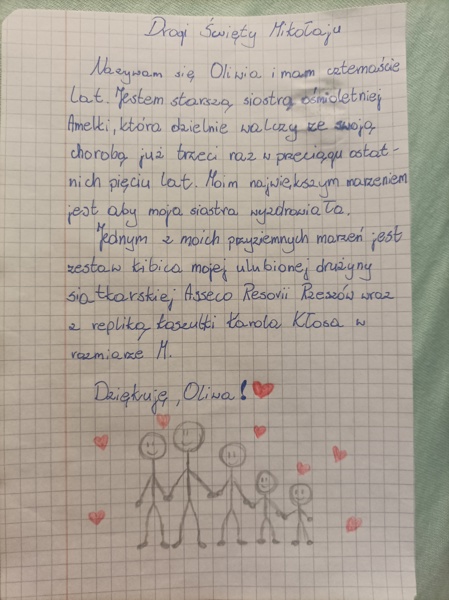 Drogi Święty Mikołaju
Nazywam się Oliwia i mam czternaście
lat. Jestem starszą siostrą ośmioletniej
Amelki, która dzielnie walczy ze swoją
chorobą już trzeci raz w przeciągu ostat-
nich pięciu lat. Moim największym marzeniem
jest aby moja siostra wyzdrowiała.
Jednym z moich przyziemnych marzeń jest
zestaw kibica mojej ulubionej drużyny
siatkarskiej Asseco Resovii Rzeszów wraz
z repliką koszulki Karola Kłosa w
rozmiarze M.
Dziękuję, Oliwa!